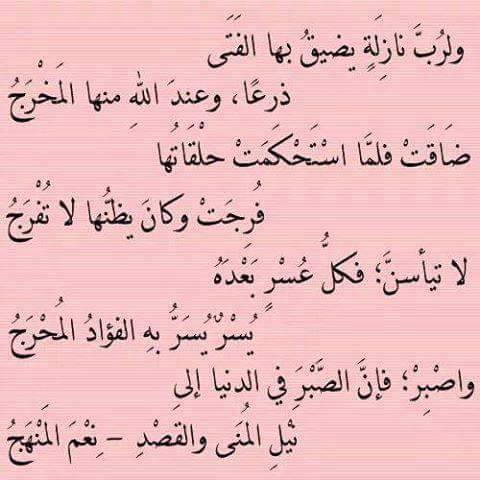 ولرُبَّ نازِلَةٍ يضيقُ بها الفَتَى
ذرعًا، وعندَ اللهِ منها المَخْرَجُ
ضَاقَتْ فلمَّا اسْتَحْكَمَتْ حلْقَاتُها
فُرِجَتْ وكانَ يظنُّها لا تُفْرَجُ
لا تيأسنَّ؛ فكلُّ عُسْرٍ بَعْدَهُ
يُسْرٌ يُسَرُّ بهِ الفؤادُ المُحْرَجُ
واصْبِرْ؛ فإنَّ الصَّبْرَ في الدنيا إلى
نَيْلِ المُنَى والقَصْدِ – نِعْمَ المَنْهَجُ